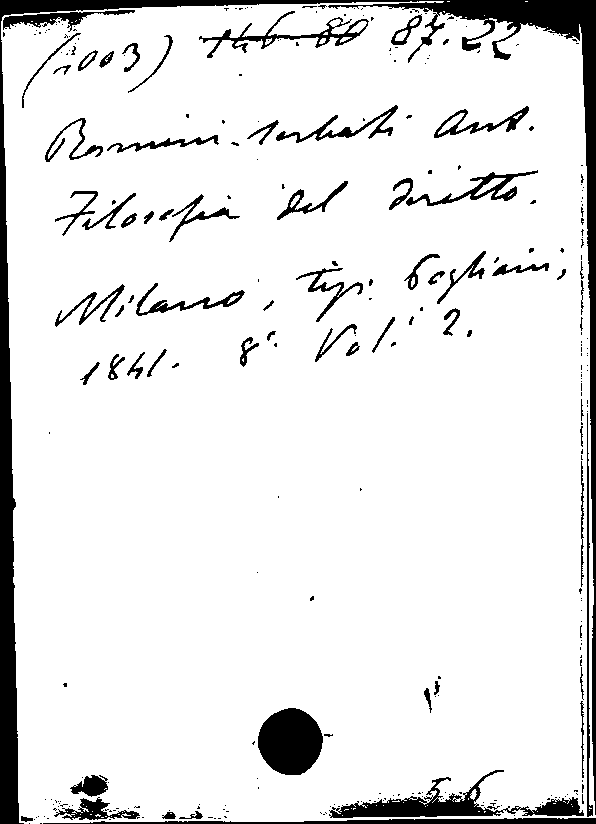 (2003) 146.80 87.22
Rosmini-Serbati Ant.
Filosofia del diritto.
Milano, tip. Pogliani,
1841. 8°. Vol.i 2.
56